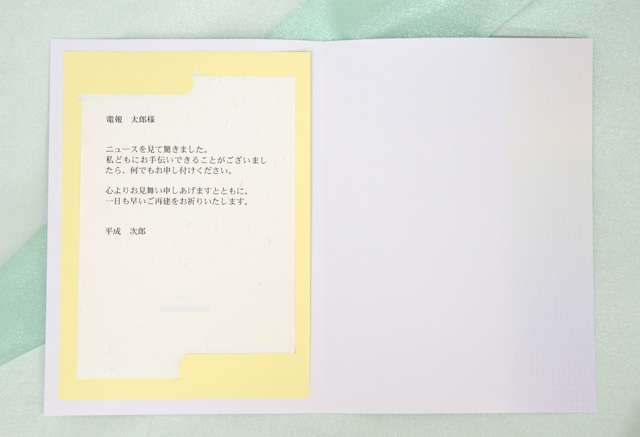 電報　太郎様
ニュースを見て驚きました。
私どもにお手伝いできることがございまし
たら、何でもお申し付けください。
心よりお見舞い申しあげますとともに、
一日も早いご再建をお祈りいたします。
平成　次郎